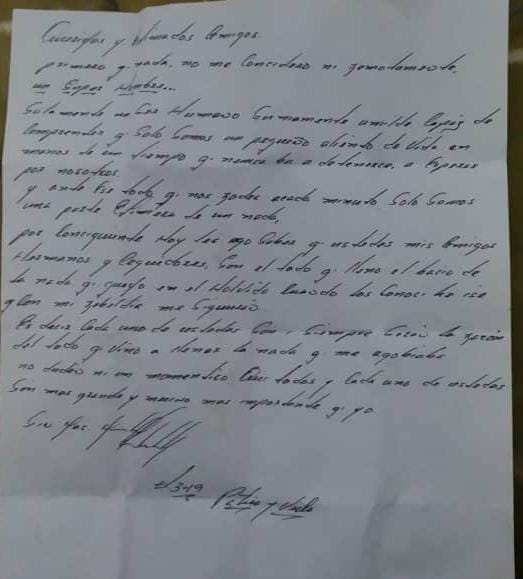 Queridos y Amados Amigos.
primero q. nada, no me Considero ni remotamente,
un Super Hombre...
Solamente un Ser Humano Sumamente umilde Capás de
Comprender q. Solo Somos un pequeño aliento de Vida en
manos de un tiempo q. nunca ba a detenerse, a Esperar
por nosotros.
y ante Ese todo q. nos rodea acada minuto Solo Somos
una parte Efimera de un nada,
por Consiguiente Hoy les ago Saber q. ustedes mis Amigos
Hermanos y Seguidores, Son el todo q. lleno el bacio de
la nada q. en el los Conoci he ise
q en mi rebeldia me Siguiera
Es decir Cada uno de ustedes Son y Siempre Serán la razón
del todo q. Vino a llenar la nada q. me agobiaba
no duden ni un momentico Que todos y Cada uno de ustedes
Son mas grande y mucho mas importante q. yo.